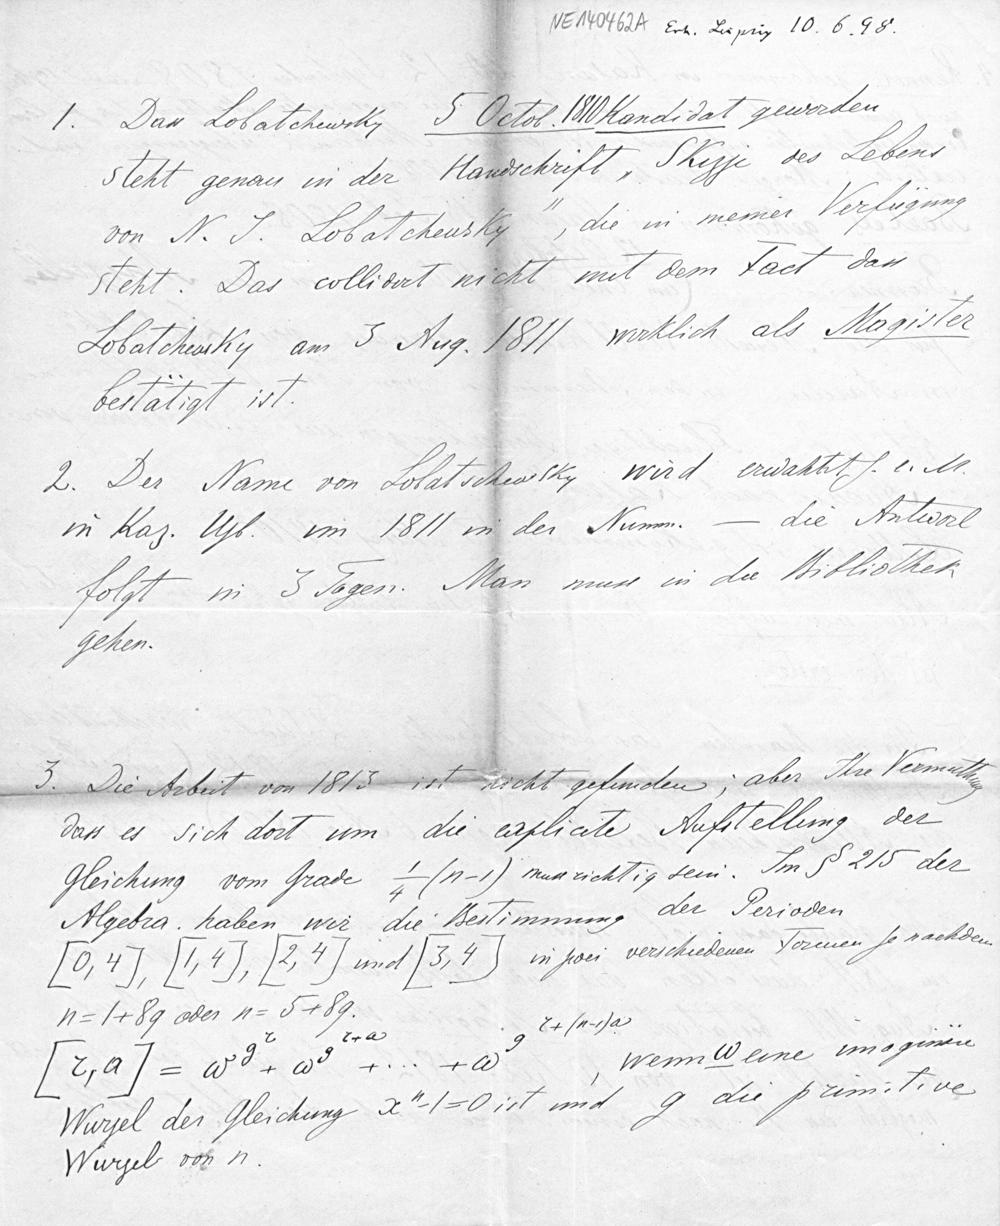 NE140462A Erh. Leipzig 10.6.98.
1. Dass Lobatchewsky 5 Octob. 1810 Kandidat geworden
steht genau in der Handschrift „Skizze des Lebens
von N. I. Lobatchewsky", die in meiner Verfügung
steht. Das collidirt nicht mit dem Fact dass
Lobatchewsky am 3 Aug. 1811 wirklich als Magister
bestätigt ist.
2. Der Name von Lobatschewsky wird erwähnt
in Kaz. im 1811 in der Numm. — die Antwort
folgt in 3 Tagen. Man muss in die Bibliothek
gehen.
3. Die Arbeit von 1813 ist nicht gefunden; aber Ihre Vermuthung
dass es sich dort um die explicite Aufstellung der
Gleichung vom Grade 1/4 (n-1) muss richtig sein. Im § 215 der
Algebra haben wir die Bestimmung der Perioden
[0,4], [1,4], [2,4] und [3,4] in zwei verschiedenen Formen je nachdem
n=1+8q oder n=5+8q.
[r,a] = ω^{g^r} + ω^{g^{r+a}} + ··· + ω^{g^{r+(n-1)a}}, wenn ω eine imaginäre
Wurzel der Gleichung x^n-1=0 ist und g die primitive
Wurzel von n.